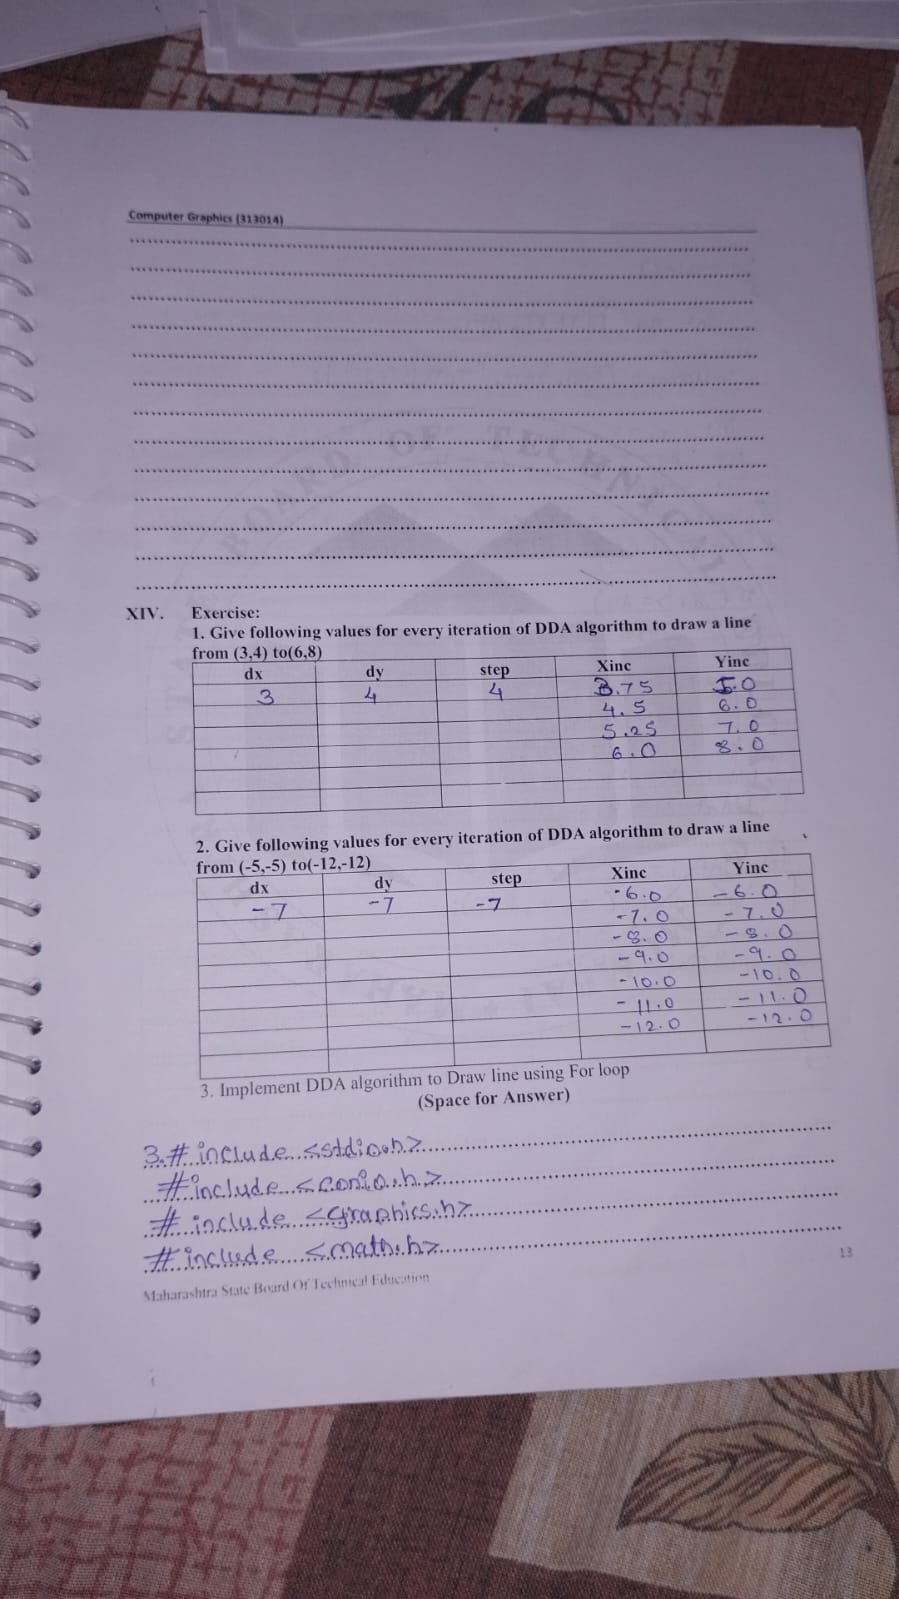 Computer Graphics (313014)
XIV. Exercise:
1. Give following values for every iteration of DDA algorithm to draw a line
from (3,4) to(6,8)
dx dy step Xinc Yinc
3 4 4 3.75 5.0
4.5 6.0
5.25 7.0
6.0 8.0
2. Give following values for every iteration of DDA algorithm to draw a line
from (-5,-5) to(-12,-12)
dx dy step Xinc Yinc
-7 -7 -7 -6.0 -6.0
-7.0 -7.0
-8.0 -8.0
-9.0 -9.0
-10.0 -10.0
-11.0 -11.0
-12.0 -12.0
3. Implement DDA algorithm to Draw line using For loop
(Space for Answer)
3. # include <stdio.h>
#include <conio.h>
# include <graphics.h>
#include <math.h>
13
Maharashtra State Board Of Technical Education